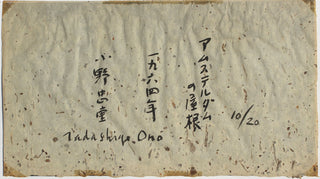 アムステルダム
の屋根
10/20
一九六四年
小野忠重
Tadashige. Ono